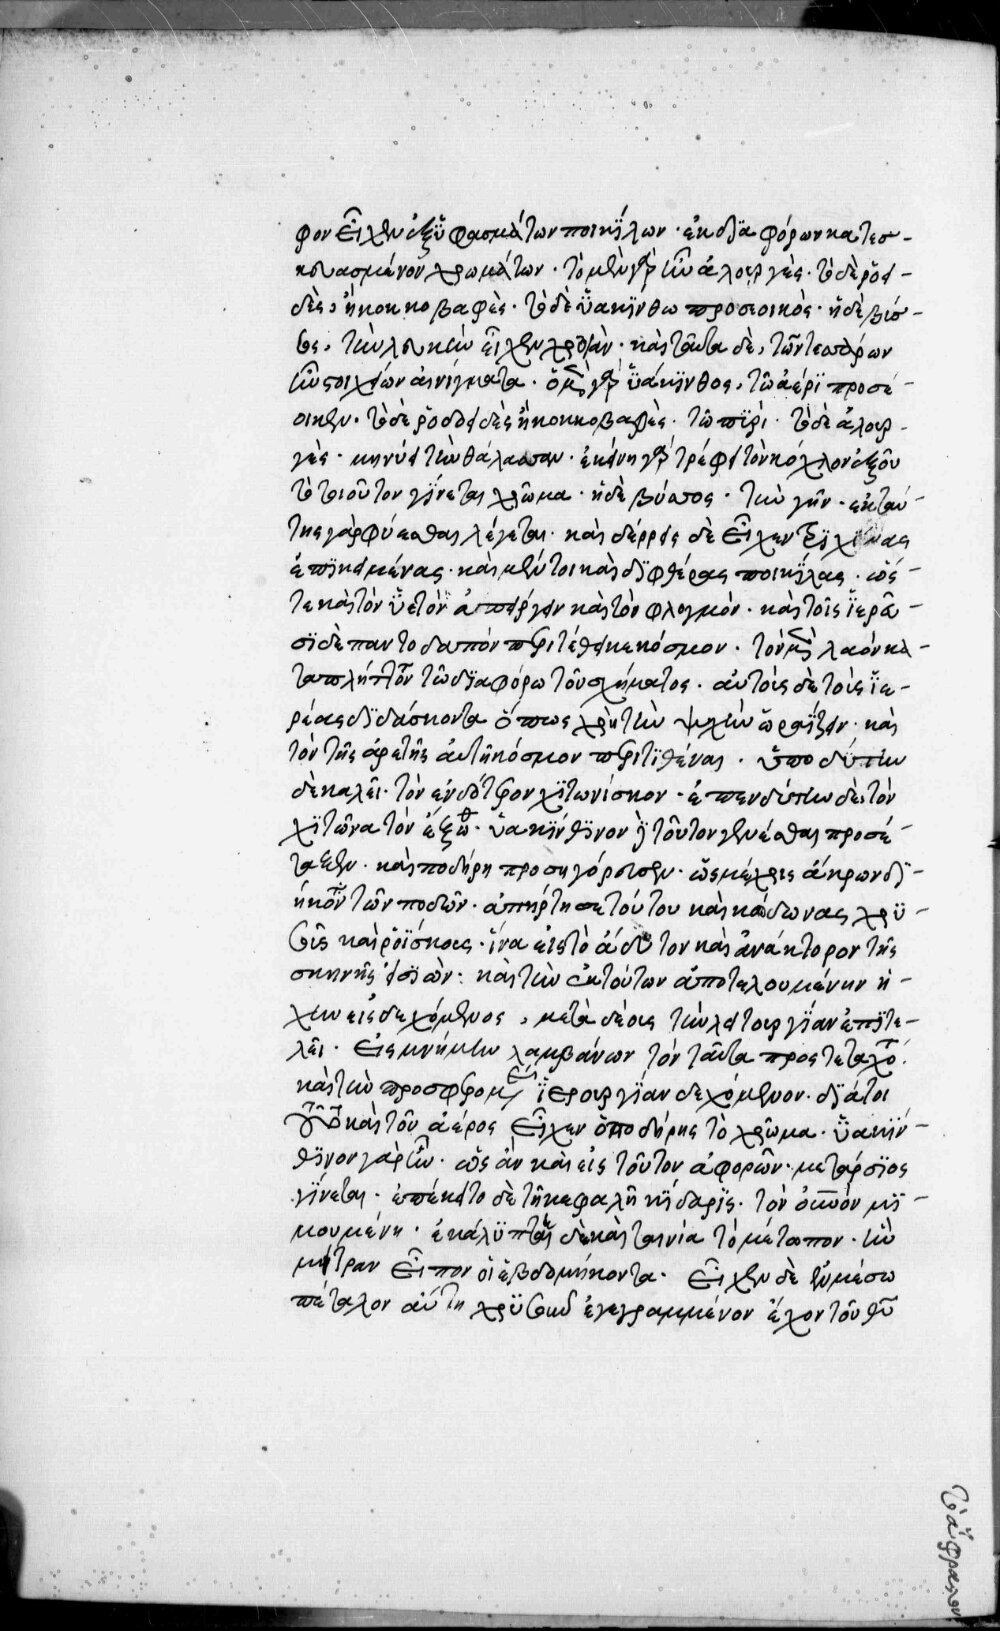 φον εἶχεν ἐξ ὑφασμάτων ποικίλων · ἐκ διαφόρων κατεσ-
κευασμένον χρωμάτων · τὸ μὲν γὰρ ἦν ἁλουργές · τὸ δὲ ῥοει-
δὲς, ἢ κοκκοβαφὲς · τὸ δὲ ὑακίνθω προσεοικός · ἡ δὲ βύσ-
σος, τὴν λευκὴν εἶχεν χροιάν · καὶ ταῦτα δὲ, τῶν τεσσάρων
ἦν στοιχείων αἰνίγματα · ὁ μὲν γὰρ ὑάκινθος, τῶ ἀέρι προσέ-
οικεν · τὸ δὲ ῥοδοειδὲς ἢ κοκκοβαφὲς · τῶ πυρί · τὸ δὲ ἁλουρ-
γὲς · μηνύει τὴν θάλασσαν · ἐκείνη γὰρ τρέφει τὸν κόχλον ἐξ οὗ
τὸ τοιοῦτον γίνεται χρῶμα · ἡ δὲ βύσσος · τὴν γῆν · ἐκ ταύ-
της γὰρ φύεσθαι λέγεται · καὶ δέρρεις δὲ εἶχεν τριχίνας
ἐπικειμένας · καὶ μέντοι καὶ διφθέρας ποικίλας · ὥσ-
τε καὶ τὸν ὑετὸν ἀπείργειν καὶ τὸν φλογμόν · καὶ τοῖς ἱερεῦ-
σι δὲ παντοδαπὸν περιτέθεικε κόσμον · τὸν μὲν λαὸν κα-
ταπλήττων τῶ διαφόρω τοῦ σχήματος · αὐτοὺς δὲ τοὺς ἱε-
ρέας διδάσκοντα ὅπως χρὴ τὴν ψυχὴν ὡραΐζειν · καὶ
τὸν τῆς ἀρετῆς αὐτῆ κόσμον περιτιθέναι · ὑποδύτην
δὲ καλεῖ · τὸν ἐνδότερον χιτωνίσκον · ἐπενδύτην δὲ, τὸν
χιτῶνα τὸν ἔξωθεν · ὑακίνθινον δὲ τοῦτον γενέσθαι προσέ-
ταξεν · καὶ ποδήρη προσηγόρευσεν · ὡς μέχρις ἄκρων δι-
ήκοντα τῶν ποδῶν · ἀπήρτησε τούτου καὶ κώδωνας χρυ-
σοῦς καὶ ῥοΐσκους · ἵνα εἰς τὸ ἄδυτον καὶ ἀνάκτορον τῆς
σκηνῆς εἰσιὼν · καὶ τὴν ἐκ τούτων ἀποτελουμένην ἠ-
χὴν εἰσδεχόμενος, μετὰ δέους τὴν λειτουργίαν ἐπιτε-
λεῖ · εἰς μνήμην λαμβάνων τὸν ταῦτα προστεταχότα
καὶ τὴν προσφερομένην ἱερουργίαν δεχόμενον · διάτοι
τοῦτο καὶ τοῦ ἀέρος εἶχεν ὁ ποδήρης τὸ χρῶμα · ὑακίν-
θινον γὰρ ἦν · ὡς ἂν καὶ εἰς τοῦτον ἀφορῶν · μετάρσιος
γίνεται · ἐπέκειτο δὲ τῆ κεφαλῆ κίδαρις · τὸν οὐρανὸν μι-
μουμένη · ἐκάλυπτε δὲ καὶ ταινία τὸ μέτωπον · ἣν
μίτραν εἶπον οἱ ἑβδομήκοντα · εἶχεν δὲ ἐν μέσω
πέταλον αὕτη χρυσοῦν ἐγεγραμμένον ἔχον τοῦ θυ